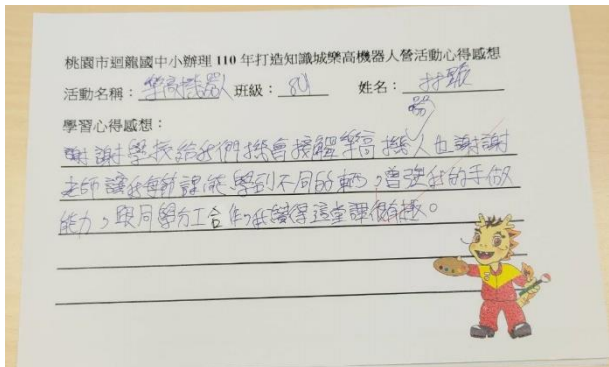 桃園市迴龍國中小辦理 110 年打造知識城樂高機器人營活動心得感想
活動名稱：樂高機器人 班級：801 姓名：林
學習心得感想：
謝謝學校給我們機會接觸樂高機人也謝謝
老師讓我每節課能學到不同的東西，增強我的手做
能力，跟同學分工合作，我覺得這堂課很有趣。